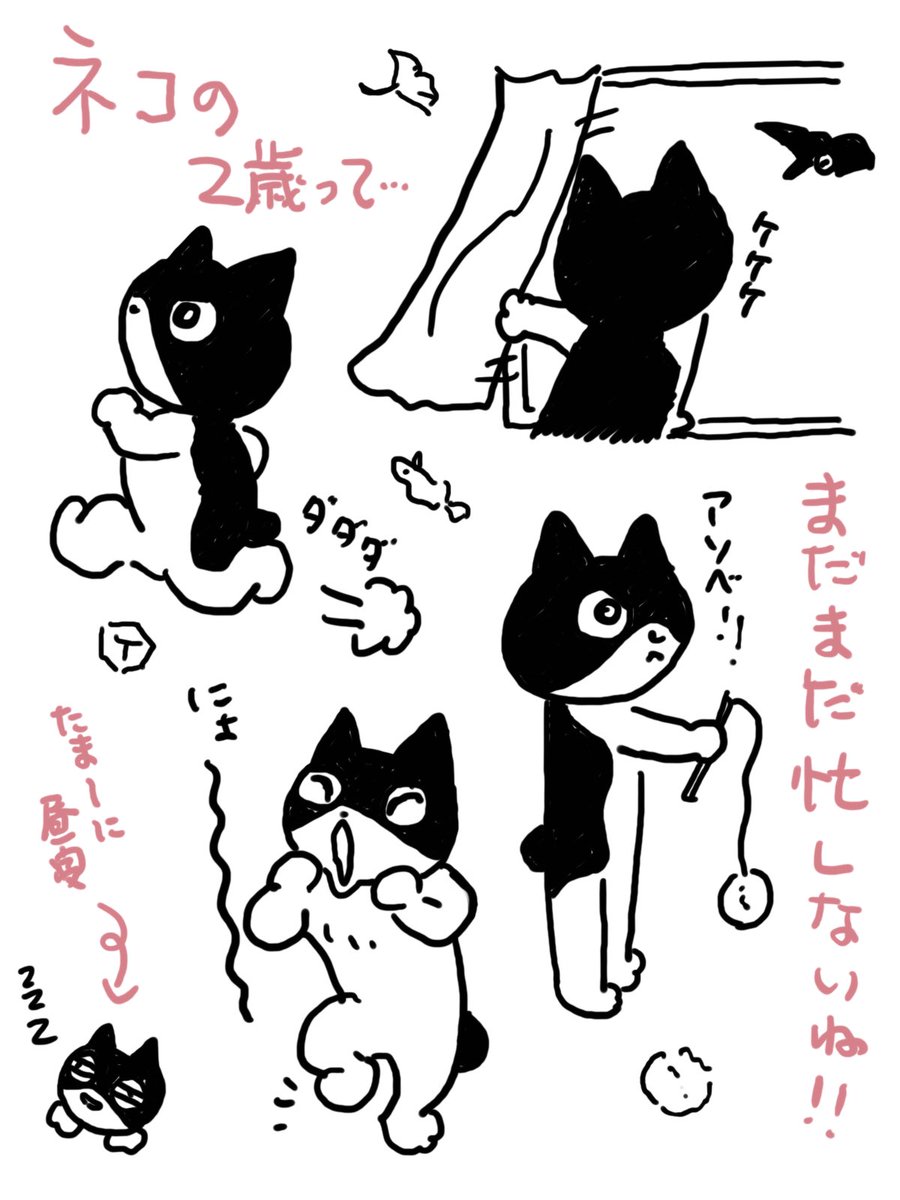 ネコの
2歳って…
ケケケ
ダダダ
アソベ!!
まだまだ忙しないね!!
にょ
たまーに
昼寝
zzz